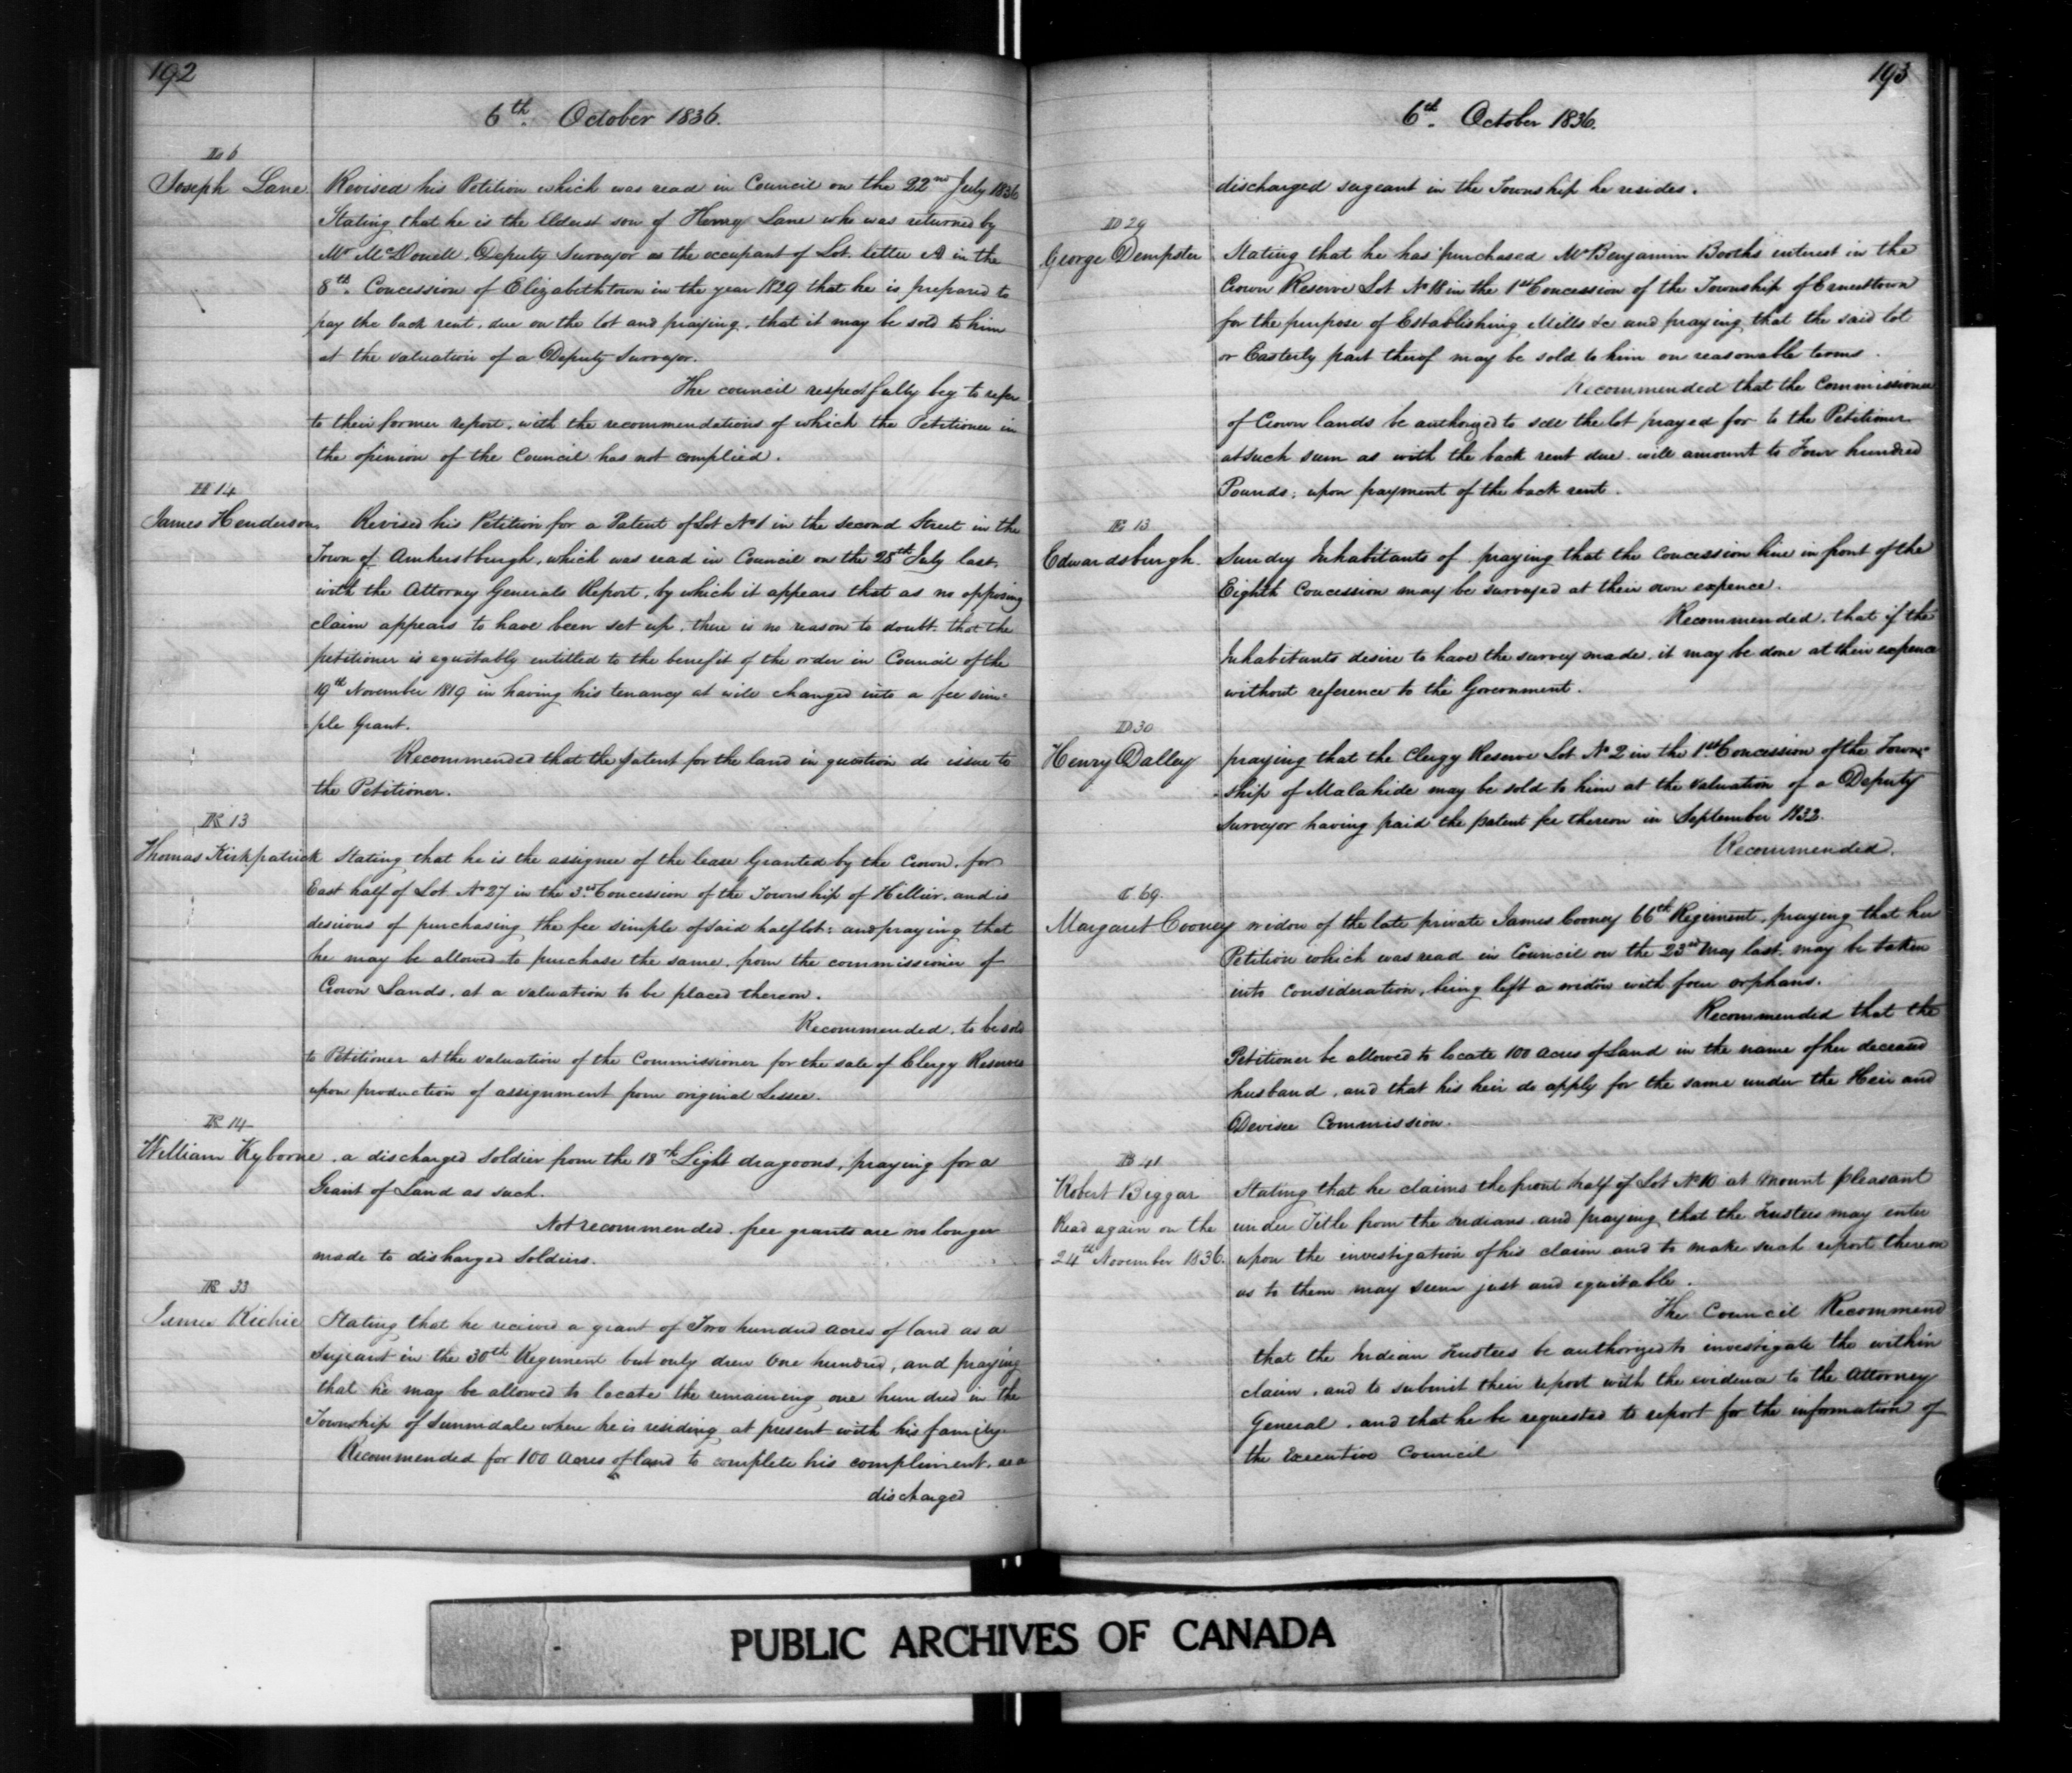 192
6th. October 1836.
L 6
Joseph Lane Revised his Petition which was read in Council on the 22nd July 1836
Stating that he is the Eldest son of Henry Lane who was returned by
Mr McDonell, Deputy Surveyor as the occupant of Lot letter A in the
8th. Concession of Elizabethtown in the year 1829 that he is prepared to
pay the back rent, due on the lot and praying, that it may be sold to him
at the valuation of a Deputy Surveyor.
The council respectfully beg to refer
to their former report, with the recommendations of which the Petitioner in
the opinion of the Council has not complied.
H 14
James Henderson Revised his Petition for a Patent of Lot No 1 in the second Street in the
Town of Amherstburgh, which was read in Council on the 28th July last,
with the Attorney Generals Report, by which it appears that as no opposing
claim appears to have been set up, there is no reason to doubt that the
petitioner is equitably entitled to the benefit of the order in Council of the
19th November 1819 in having his tenancy at will changed into a fee sim-
ple Grant.
Recommended that the patent for the land in question do issue to
the Petitioner.
K 13
Thomas Kirkpatrick Stating that he is the assignee of the lease Granted by the Crown, for
East half of Lot No 27 in the 3rd Concession of the Township of Hillier, and is
desirous of purchasing the fee simple of said half lot; and praying that
he may be allowed to purchase the same, from the commissioner of
Crown Lands, at a valuation to be placed thereon.
Recommended, to be sold
to Petitioner at the valuation of the Commissioner for the sale of Clergy Reserves
upon production of assignment from original Lessee.
K 14
William Kyborne, a discharged soldier from the 18th Light dragoons, praying for a
Grant of Land as such.
Not recommended, free grants are no longer
made to discharged Soldiers.
R 33
James Richie Stating that he received a grant of Two hundred acres of land as a
Serjeant in the 30th Regiment but only drew One hundred, and praying
that he may be allowed to locate the remaining one hundred in the
Township of Sunnidale where he is residing at present with his family.
Recommended for 100 Acres of land to complete his compliment, as a
discharged
193
6th. October 1836.
discharged sergeant in the Township he resides.
D 29
George Dempster Stating that he has purchased Mr Benjamin Booths interest in the
Crown Reserve Lot No 18 in the 1st Concession of the Township of Ernesttown
for the purpose of Establishing Mills &c and praying that the said lot
or Easterly part therof may be sold to him on reasonable terms.
Recommended that the Commissioner
of Crown lands be authorized to sell the lot prayed for to the Petitioner
at such sum as with the back rent due will amount to Four hundred
Pounds; upon payment of the back rent.
E 13
Edwardsburgh Sundry Inhabitants of, praying that the Concession line in front of the
Eighth Concession may be surveyed at their own expence.
Recommended, that if the
Inhabitants desire to have the survey made, it may be done at their expence
without reference to the Government.
D 30
Henry Dalley praying that the Clergy Reserve Lot No 2 in the 1st Concession of the Town-
ship of Malahide may be sold to him at the valuation of a Deputy
Surveyor having paid the patent fee thereon in September 1832.
Recommended.
C 69.
Margaret Cooney widow of the late private James Cooney 66th Regiment, praying that her
Petition which was read in Council on the 23rd May last, may be taken
into consideration, being left a widow with four orphans.
Recommended that the
Petitioner be allowed to locate 100 Acres of Land in the name of her deceased
husband, and that his heir do apply for the same under the Heir and
Devisee Commission.
B 41
Robert Biggar Stating that he claims the front half of Lot No 10 at Mount Pleasant
Read again on the under Title from the Indians and praying that the Trustees may enter
24th November 1836. upon the investigation of his claim and to make such report thereon
as to them may seem just and equitable.
The Council Recommend
that the Indian Trustees be authorized to investigate the within
claim, and to submit their report with the evidence to the Attorney
General, and that he be requested to report for the information of
the Executive Council
PUBLIC ARCHIVES OF CANADA